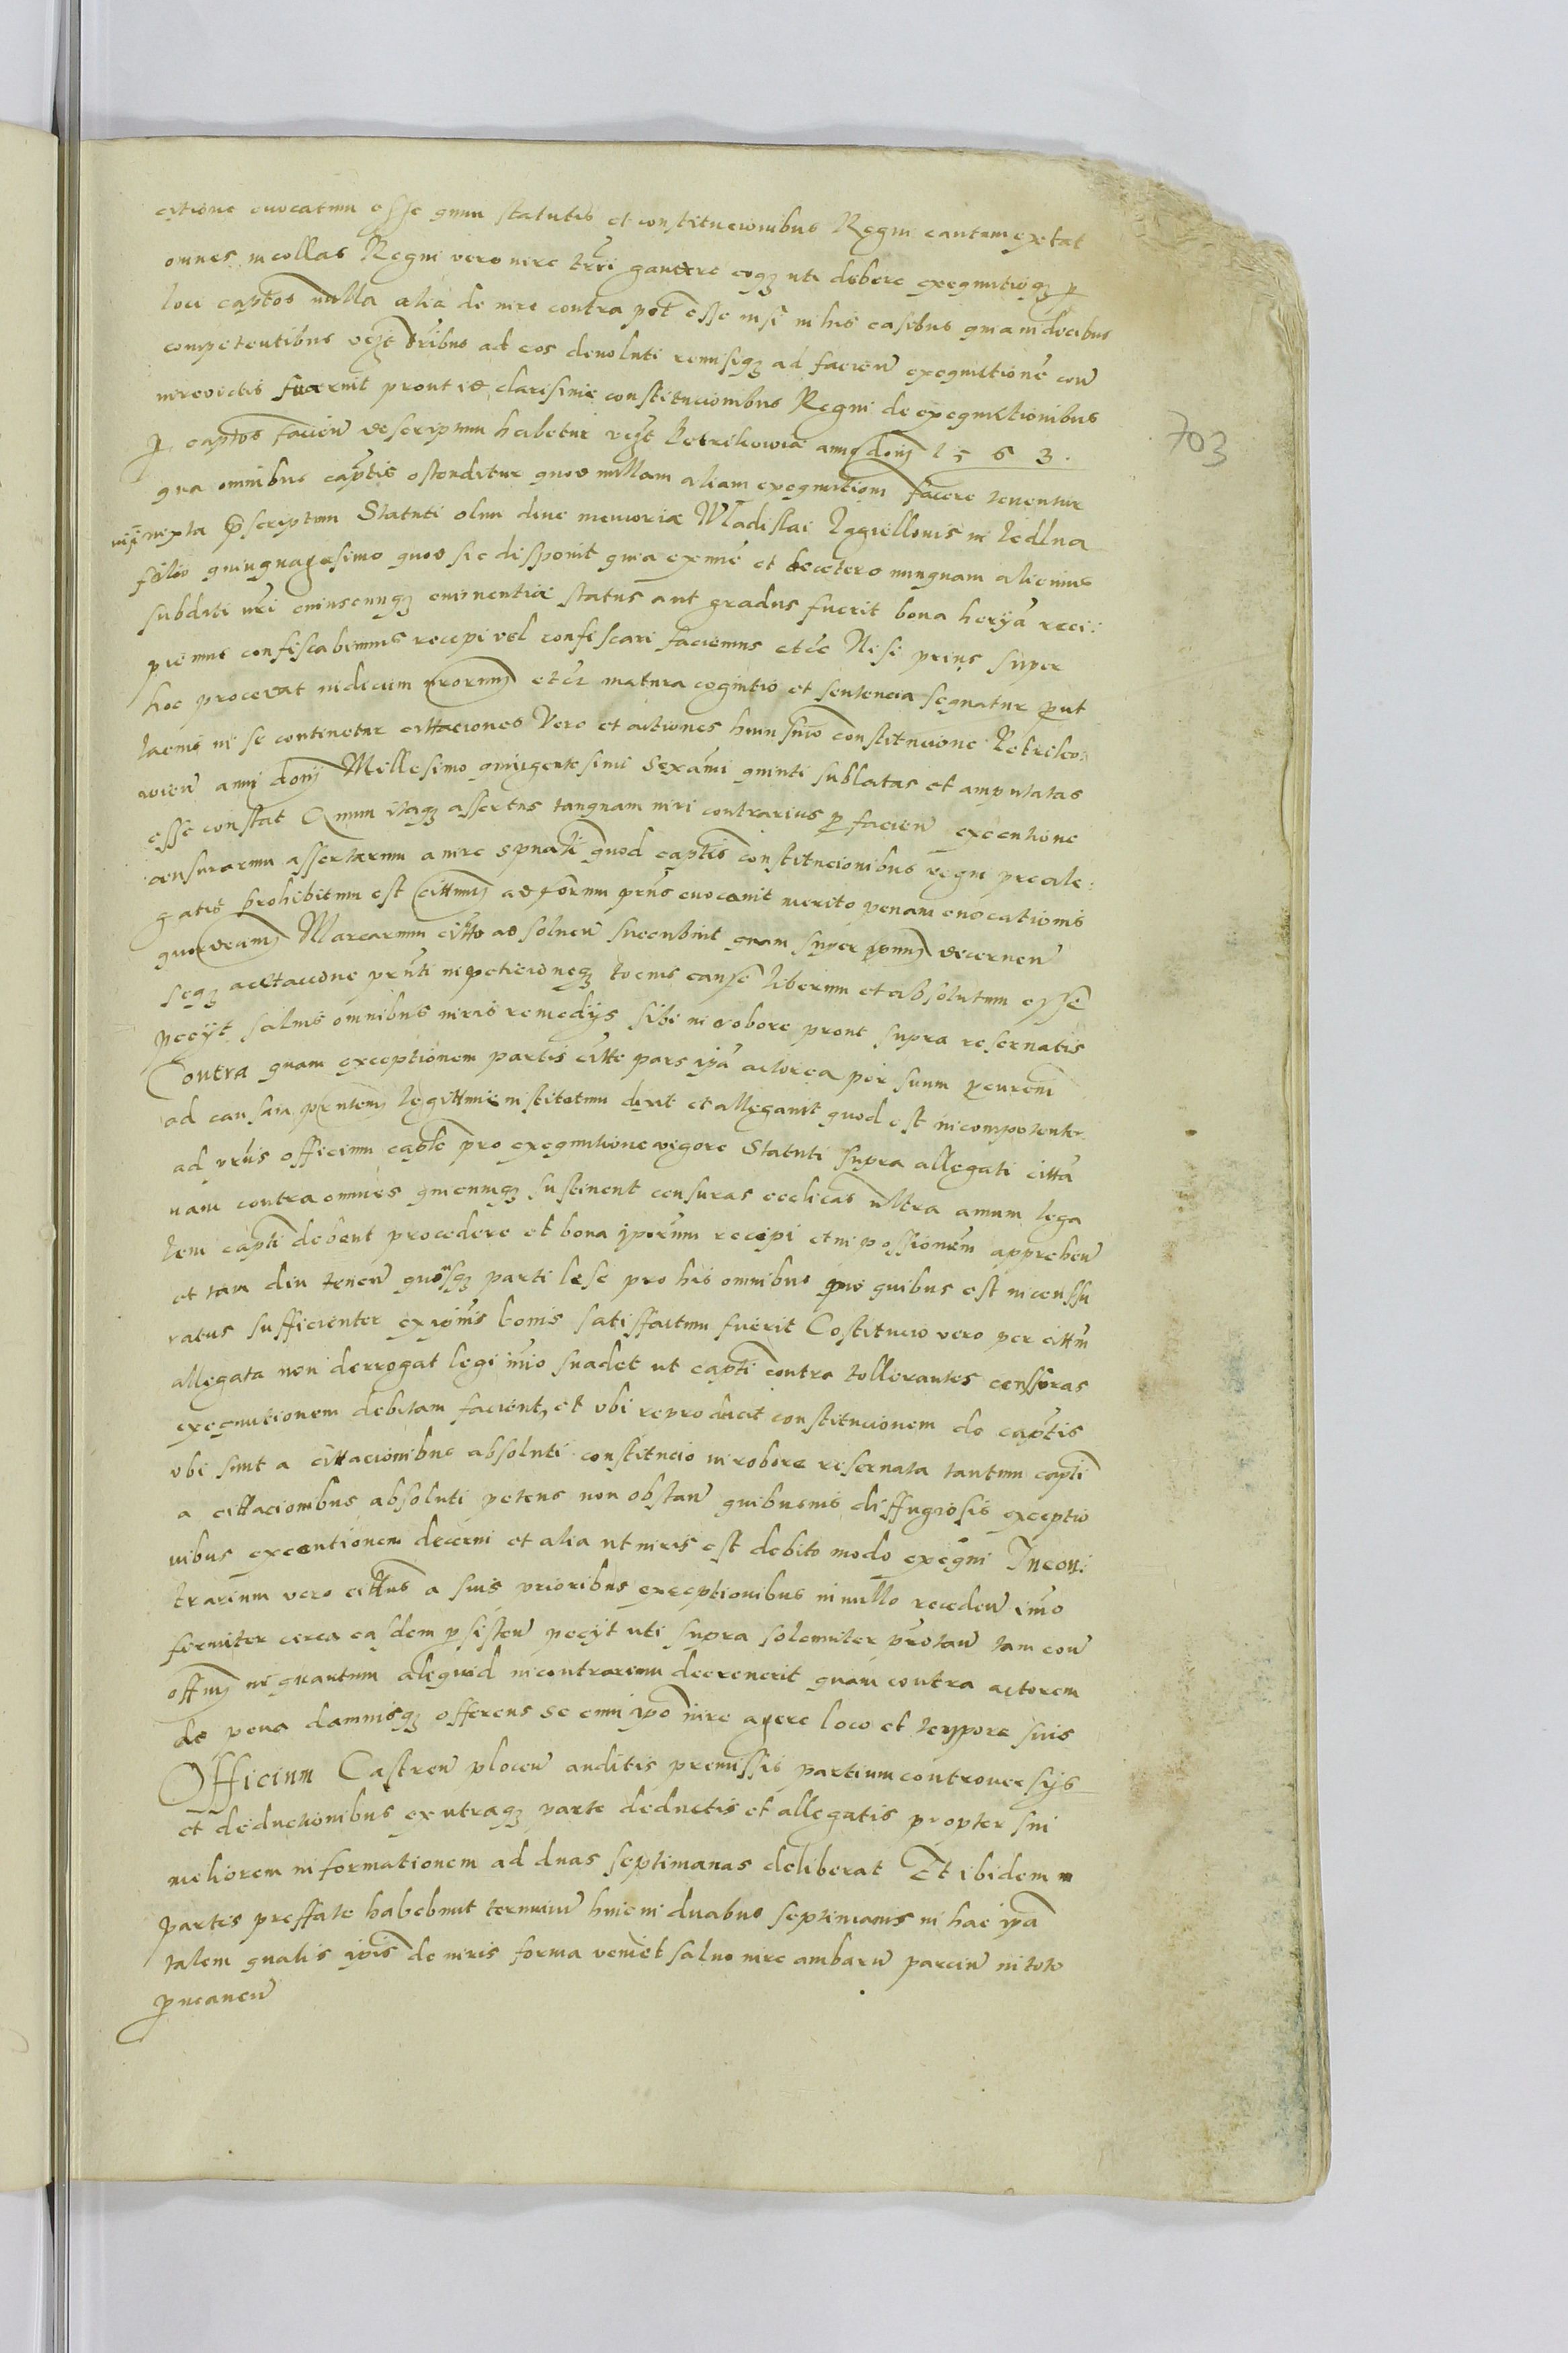 citione evocatum esse quum statutis et constitucionibus Regni cautum extat
omnes incollas Regni vero iure trri gaudere eoq uti debere exequutioq p
loci captos nulla alia de iure contra pot esse nisi in his casibus qui a iudicibus
competentibus vest ad eos devoluti remisiq ad facien exequutione con
iurevictis fuerint prout id clarisime constitucionibus Regni de exequutionibus
p captos facien descriptum habetur vest Petrikoviae anno domj 1563.
qua omnibus captis ostenditur quod nullam aliam exequutionj facere tenentur
nisi iuxta pscriptum Statuti olim dive memoriae Wladislai Jagiellonis in Jedlna
folio quinquagesimo quod sic disponit quia ex nuc et decetero nunquam alicuius
subditi nri cuiuscunq eminentiae status aut gradus fuerit bona herya reci:
piemus confiscabimus recepi vel confiscari faciemus etce Nisi prius super
hoc procedat iudicium nrorumj etc matura cognitio et sentencia sequatur put
lacius in se continetur cittaciones Vero et actiones constitucione Petriko:
vien anni domj Millesimo quingentesimi sexami quinti sublatas et amputatas
esse constat Quum itaq assertus tanquam iuri contrarius p facien executione
censurarum assertarum a iure spuali quod captis constitucionibus regni preale:
gatis prohibitum est cittumj ad forum pns evocavit merito penam evocationis
quordecimj Marcarum citto ad solven sucubuit quam super ipumj decernen
seq a cittacione pnti inpeticioneq tocius cause liberum et absolutum esse
peciit salvis omnibus iuris remedijs sibi in robore prout supra reservatis
Contra quam exceptionem partis citte pars ipa actorea per suum pcurem
ad causam pntemj legittime institutum dixit et allegavit quod est in competenter
ad prns officium capte pro exequutione vigore Statuti supra allegati citta
nam contra omnes quicunq sustinent censuras ecclicas ultra annum lega
lem capti debent procedere et bona iporum recipi et in possionem apprehen
et tam diu tenen quousq parti lese pro his omnibus pro quibus est in censsu
ratus sufficienter ex ipius bonis satisfactum fuerit Costitucio vero per cittm
allegata non derrogat legi imo suadet ut capti contra tollerantes censsuras
exequutionem debitam facient, et ubi reproducit constitucionem de captis
ubi sunt a cittacionibus absoluti constitucio in robore reservata tantum capti
a cittacionibus absoluti petens non obstan quibusvis diffugiosis exceptio
nibus executionem decerni et alia ut iuris est debito modo exequi Incon:
trarium vero cittus a suis prioribus exceptionibus in nullo receden imo
firmiter circa easdem psisten peciit uti supra solemniter protan tam con
offmj inquantum aliquid in contrarium decreverit quam contra actorem
de pena damnisq offerens se cum ipo iure agere loco et tempore suis
Officium Castren plocen auditis premissis partium controversijs
et deductionibus ex utraq parte deductis et allegatis propter sui
meliorem informationem ad duas septimanas deliberat Et ibidem
partes preffate habebunt terminu hinc in duabus septimanis in hac ipa
talem qualis ipis de iuris forma veniet salvo iure ambaru parciu in toto
pmanen
703